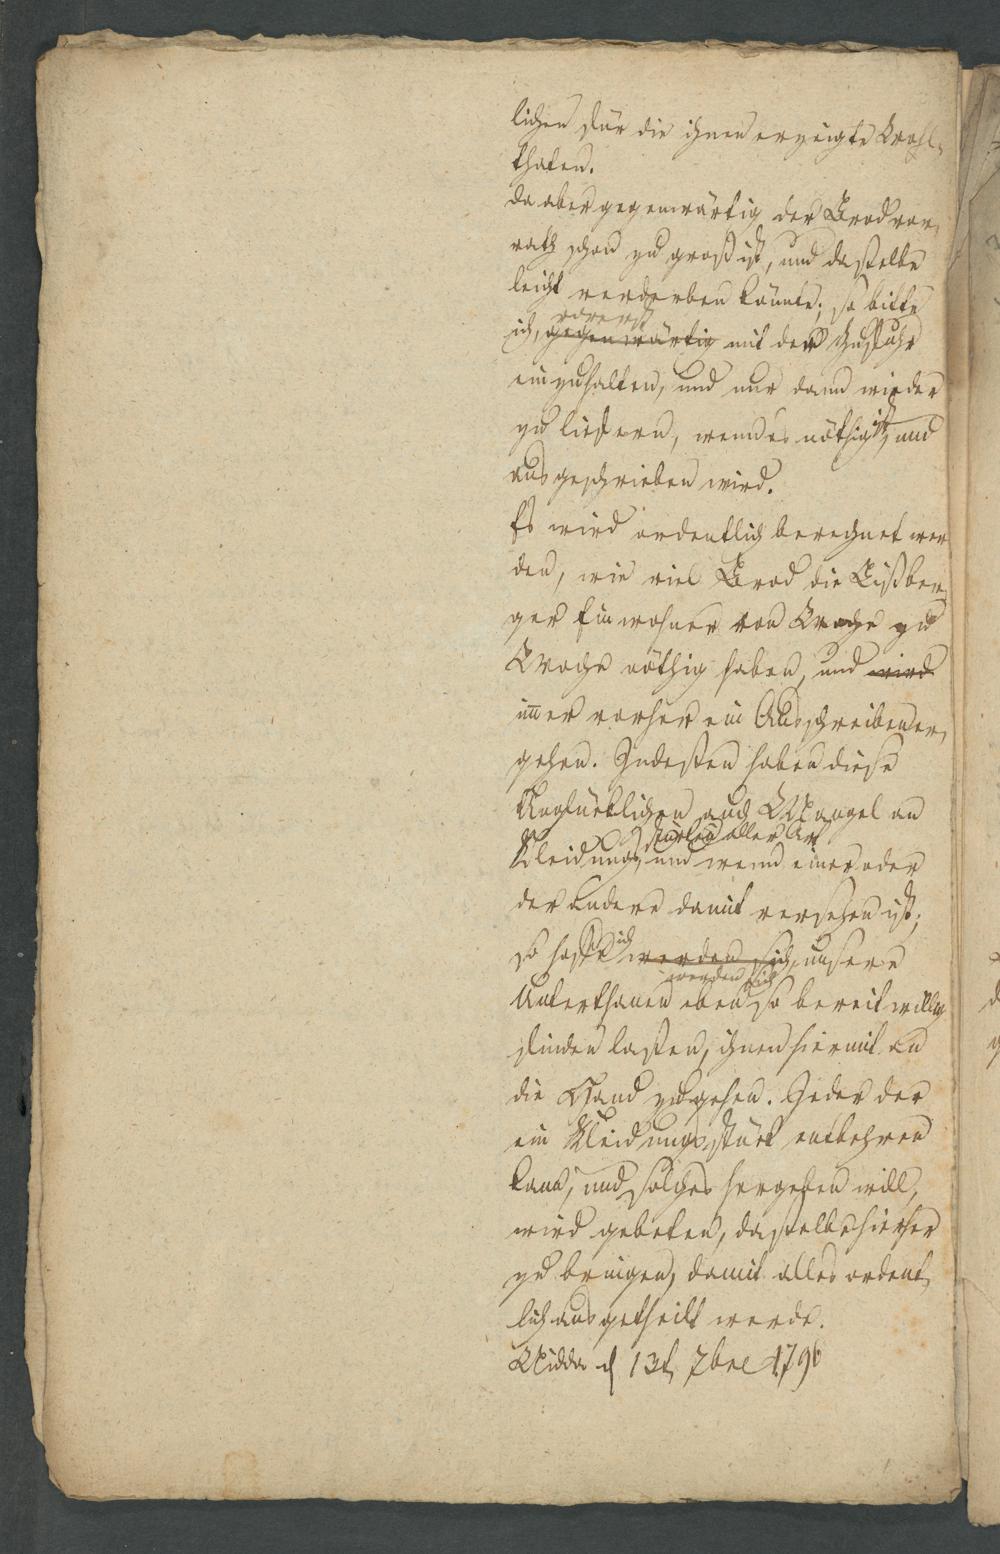 lichen für die ihnen erzeigte Wohl-
thaten.
Da aber gegenwärtig der Brodvor-
rath schon zu groß ist, und dasselbe
leicht verderben könnte; so bitte
vorerst
ich, gegenwärtig mit der Zufuhr
einzuhalten, und nur dann wieder
zu liefern, wenn es nöthig ist, und
ausgeschrieben wird.
Es wird ordentlich berechnet wer
den, wie viel Brod die Lißber-
ger Einwohner von Woche zu
Woche nöthig haben, und wird
im̅er vorher ein Ausschreiben er-
gehen. Indessen haben diese
Unglücklichen auch Mangel an
Stücken aller Art
Kleidungs, und wenn einer oder
der andere damit versehen ist;
so hoffe ich werden sich unsere
werden sich
Unterthanen eben so bereitwillig
finden lassen, ihnen hiermit an
die Hand zu gehen. Jeder der
ein Kleidungsstück entbehren
kann, und solches hergeben will,
wird gebeten, dasselbe hierher
zu bringen, damit alles ordent-
lich ausgetheilt werde.
Nidda d 13t 7bre 1796